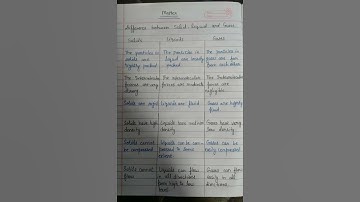 Matter
Difference between Solid Liquid and Gases
Solids Liquids Gases
The particles in The particles in The particles in
solids are liquid are loosely gases are
tightly packed packed. from each other.
The Intermolecular The intermolecular The Intermolecular
forces are very forces are moderate forces are
strong negligible.
Solids are rigid Liquids are fluid. Gases are highly
fluid.
Solids have high Liquids have Gases have very
density. density. low density.
Solids cannot Liquids can be com- Gases can be
be compressed pressed to some easily compressed
extent
Solids cannot Liquids can flow Gases can flow
flow. in all directions easily in all
from high to low directions.
level